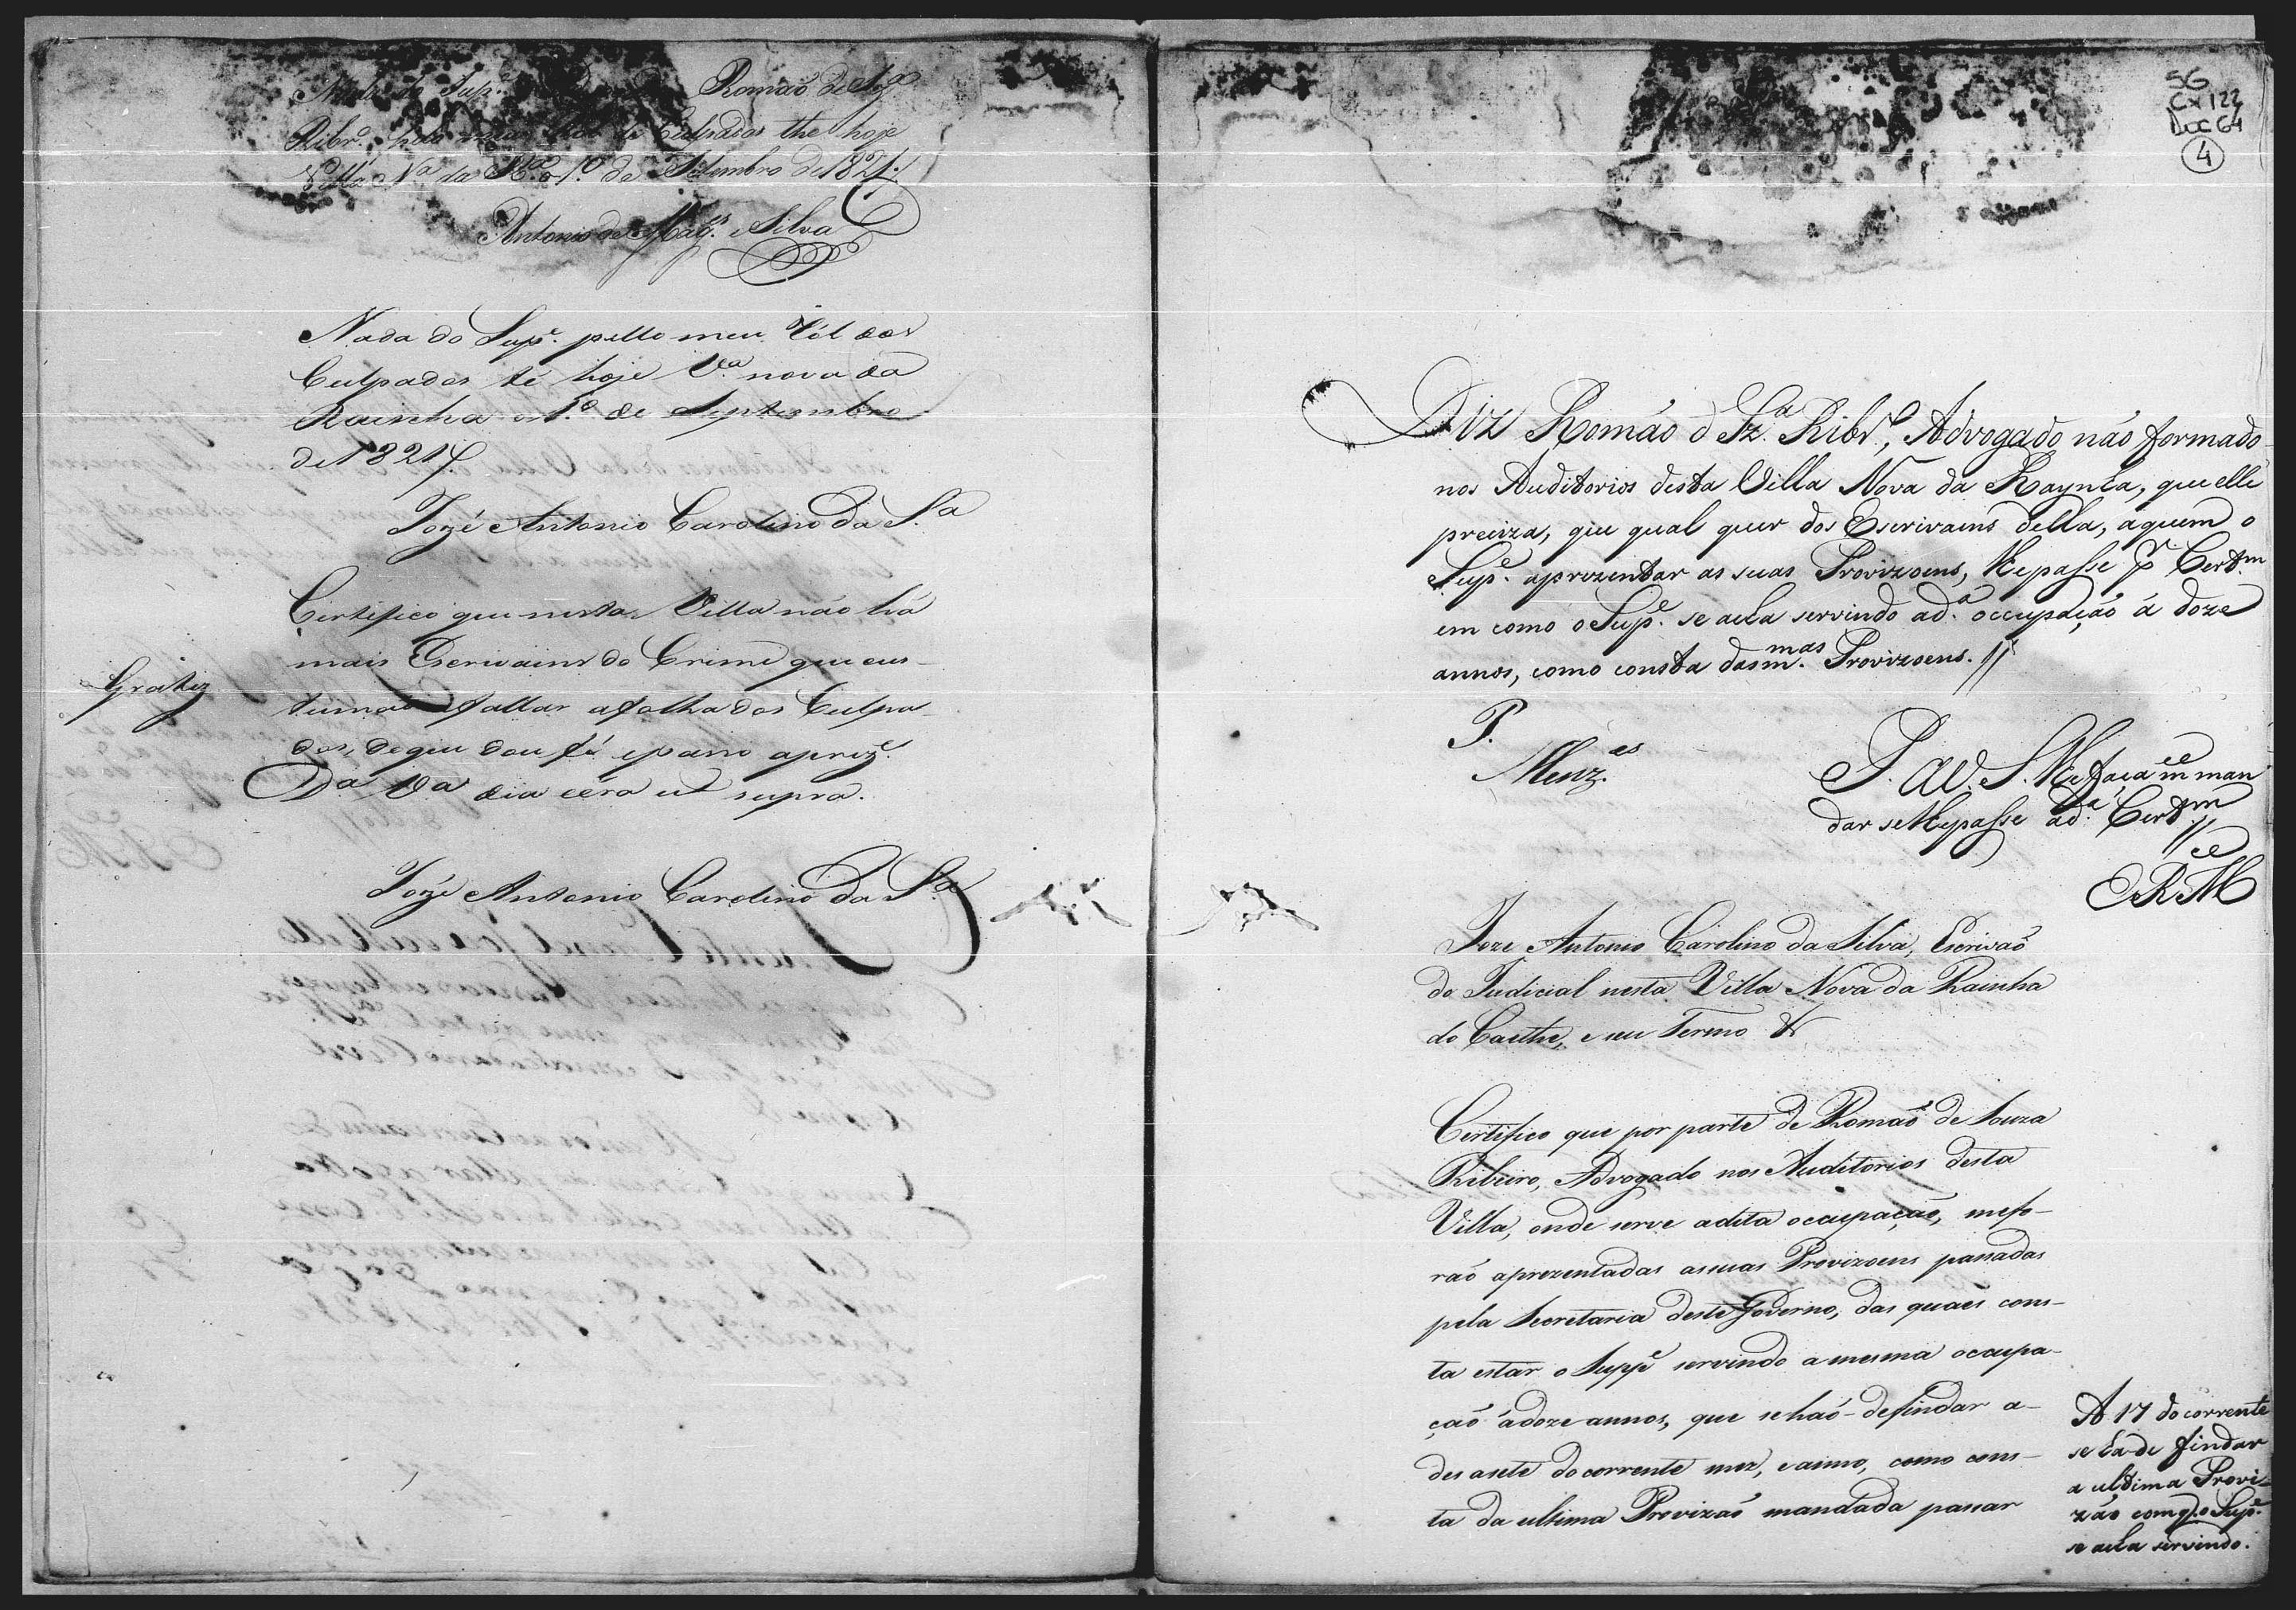 Nada do Sup.e Romaõ de Sz.a
Ribr.o pelo meu Rol de Culpados the hoje
Villa N.a da R.a o 1.o de Setembro de 1821.
Antonio de Mag.es e Silva
Nada do Sup.e pello meu Rol dos
Culpados té hoje V.a nova da
Rainha o 1.o de Septembro
de 1821
Jozé Antonio Carolino da S.a
Certifico que nesta Villa não há
mais Escrivains do Crime que cus-
tumaõ fallar a folha dos Culpa-
dos, de que dou fé e passo aprez.e
D.a V.a dia e éra ut supra.
Gratiz
Jozé Antonio Carolino da S.a
SG
Cx 122
Doc 64
4
Diz Romáo d Sz.a Ribr.o, Advogado náo formado
nos Auditorios desta Villa Nova da Raynha, que elle
preciza, que qual quer dos Escrivains della, aquem o
Sup.e aprezentar as suas Provizoens, lhe passe p.r Cert.m
em como o Sup.e se acha servindo a d.a occupaçáo á doze
annos, como consta das m.mas Provizoens. //
P.
Menz.es
P. a V. S. lhe faça m.ce man
dar se lhe passe a d.a Cert.m //
E R M.ce
Joze Antonio Carolino da Silva, Escrivaõ
do Judicial nesta Villa Nova da Rainha
do Caethe, e seu Termo &
Certifico que por parte de Romaõ de Souza
Ribeiro, Advogado nos Auditorios desta
Villa, onde serve a dita occupaçaõ, me fo-
raõ aprezentadas as suas Provizoens passadas
pela Secretaria deste Governo, das quaes cons-
ta estar o Supp.e servindo a mesma occupa-
çaõ á doze annos, que se haõ-de findar a-
des a sete do corrente mez, e anno, como cons-
ta da ultima Provizaõ mandada passar
A 17 do corrente
se ha-de findar
a ultima Provi-
záo com q. o Sup.e
se acha servindo.